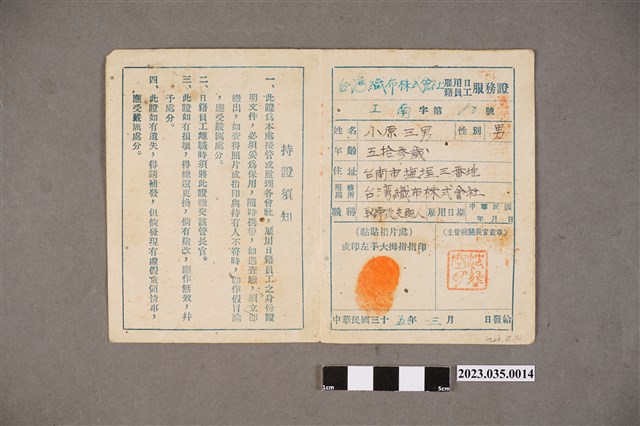 持證須知
一、此證爲本處接管或監理各會社，雇用日籍員工之身份證
明文件，必須妥爲保用，隨時携帶，如遇查驗，須立即
繳出，如查得照片或指印與持有人不符時，卽作假冒論
，應受嚴厲處分。
二、日籍員工離職時須將此證繳交該管長官。
三、此證如有損壞，得繳還更換，倘有塗改，應作無效，幷
予處分。
四、此證如有遺失，得請補發，但倘發現有虛假蒙領情事，
應受嚴厲處分。
台湾織布株式會社 雇用日籍員工 服務證
工南字第 號
姓名 小原三男 性別 男
年齡 五拾参歳
住址 台南市塩埕三番地
服務處所 台湾織布株式會社
職稱 取締役支配人 雇用日期 中華民國 年 月 日
(黏貼相片處) 或印左手大拇指指印
(主管機關長官蓋章)
中華民國三十五年三月 日發給
1cm 5cm
2023.035.0014